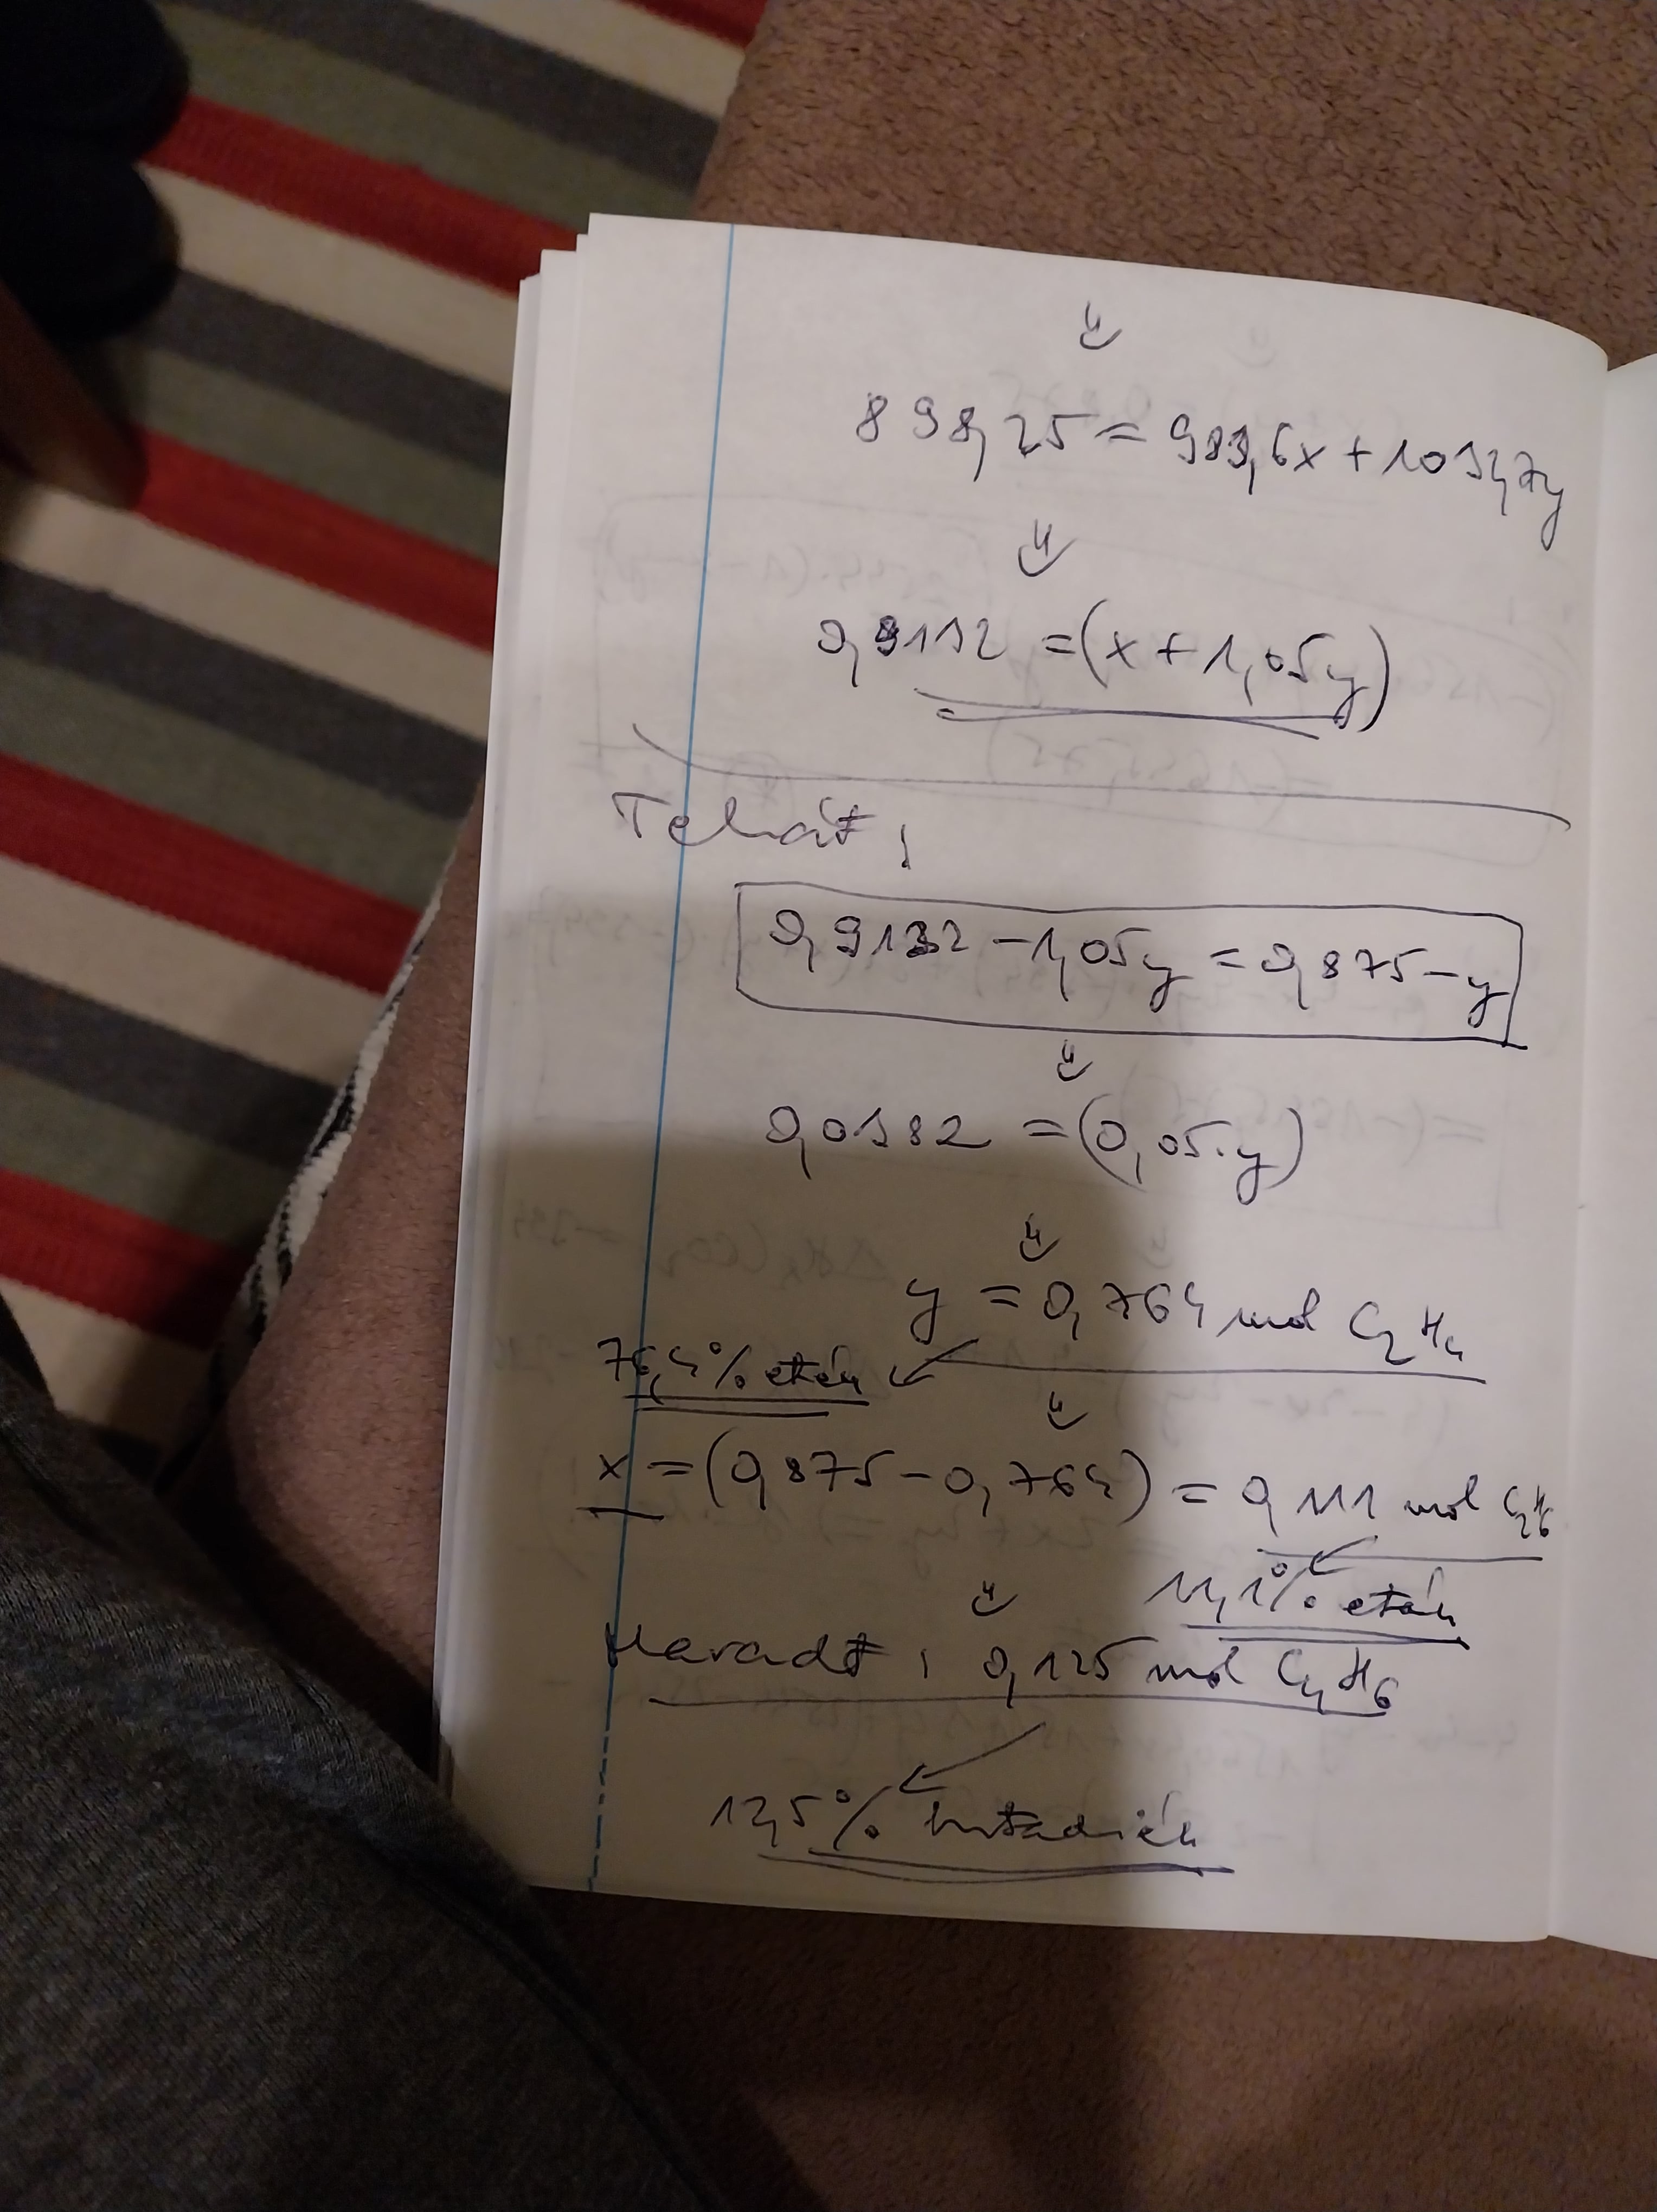 ⇓
898,25 = 983,6x + 1034,7y
⇓
0,9132 = (x + 1,05y)
Tehát:
0,9132 - 1,05y = 0,875 - y
⇓
0,0382 = (0,05·y)
⇓
y = 0,764 mol C2H4
76,4% etén
⇓
x = (0,875 - 0,764) = 0,111 mol C2H6
11,1% etán
⇓
Maradt: 0,125 mol C4H6
12,5% butadién